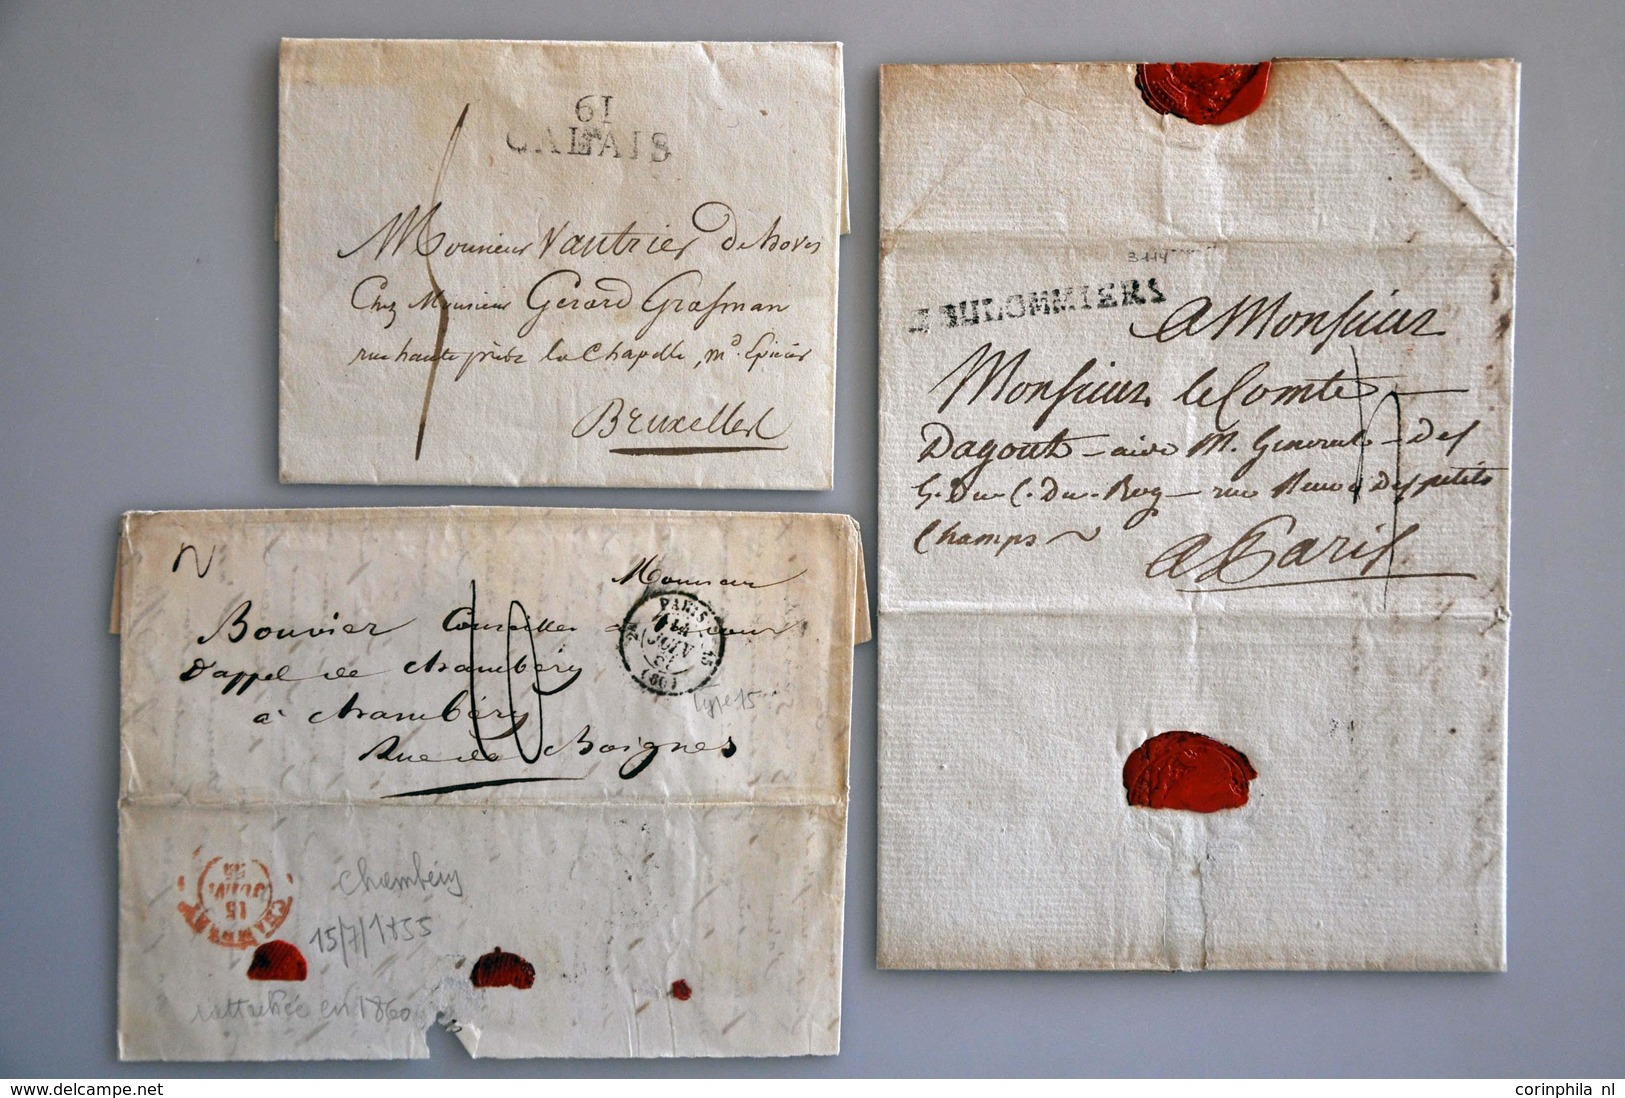 61
CALAIS
Monsieur Vautrier Dehoves
Chez Monsieur Gerard Grasman
rue haute près la Chapelle, md. Epicier
Bruxelles
3114
COULOMMIERS
A Monsieur
Monsieur le Comte
Dagoult – aide M. General – des
G. Du C. Du Roy – rue Neuve des petits
Champs
A Paris
N
Monsieur
Bouvier Conseiller
D'appel de Chambéry
à Chambéry
Rue de Boignes
10
PARIS
JUIN
(60)
type 15
CHAMBERY
15
JUIN
55
Chambéry
15/7/1855
rattachée en 1860
delcampe.net
corinphila nl